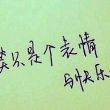 笑只是个表情
与快乐